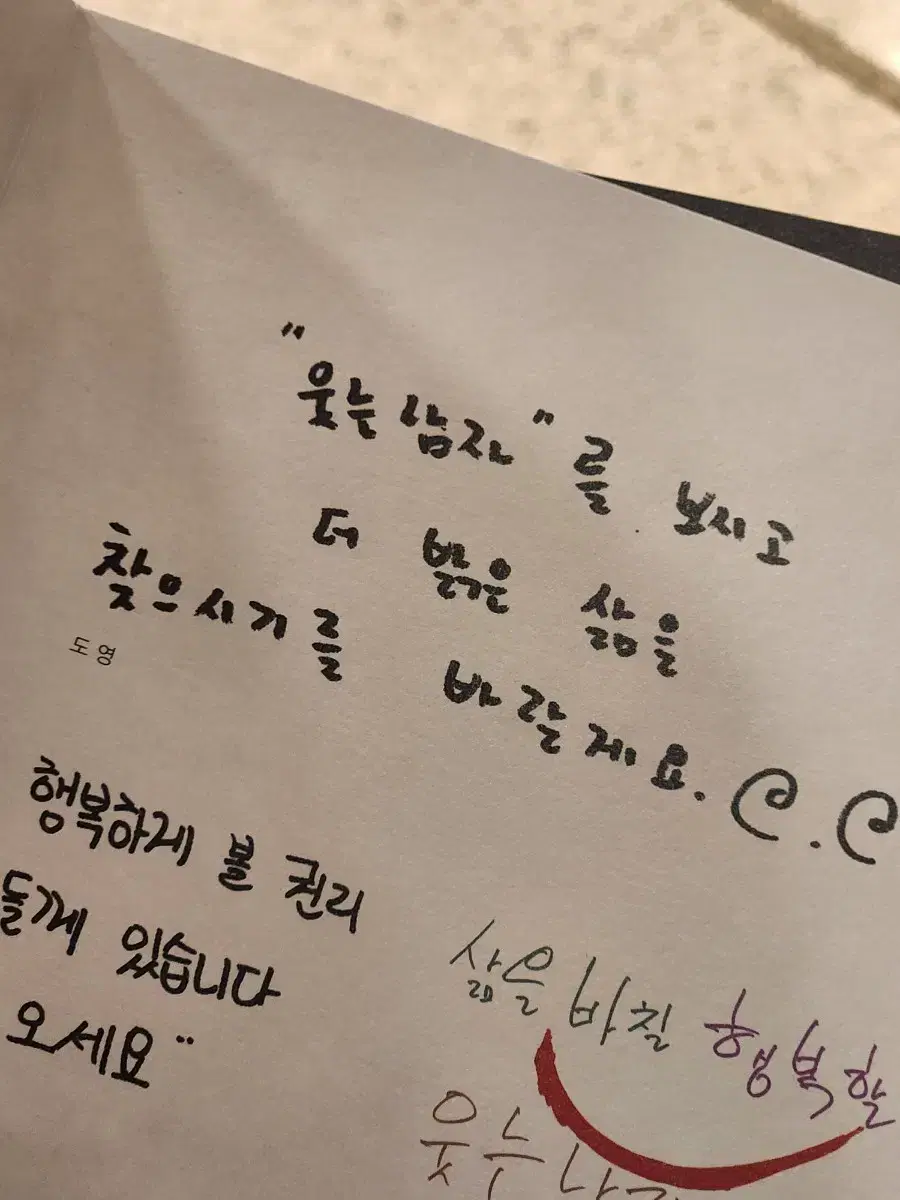 "웃는 남자"를 보시고
더 밝은 삶을
찾으시기를 바랄게요.
도영
행복하게 볼 권리
들께 있습니다
오세요"
삶을 바칠 행복할
웃는